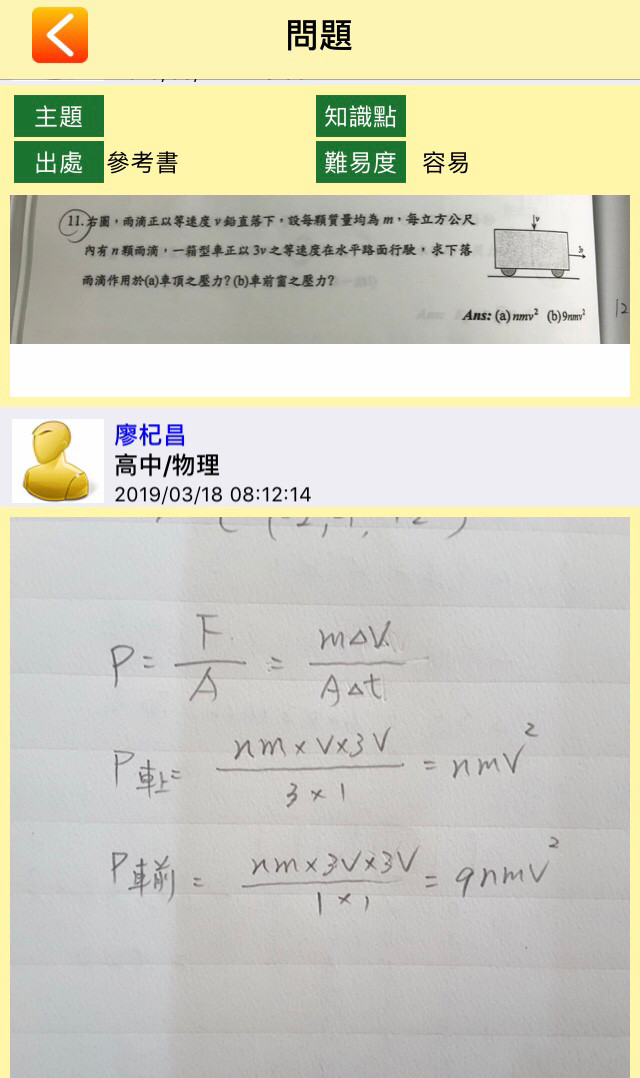 問題
主題
知識點
出處 參考書
難易度 容易
11.右圖，雨滴正以等速度 v 鉛直落下，設每顆質量均為 m，每立方公尺
內有 n 顆雨滴，一箱型車正以 3v 之等速度在水平路面行駛，求下落
雨滴作用於(a)車頂之壓力？(b)車前窗之壓力？
v
3v
Ans: (a) nmv² (b) 9nmv²
12
廖杞昌
高中/物理
2019/03/18 08:12:14
P = F / A = m△V / A△t
P車上 = nm×V×3V / 3×1 = nmV²
P車前 = nm×3V×3V / 1×1 = 9nmV²